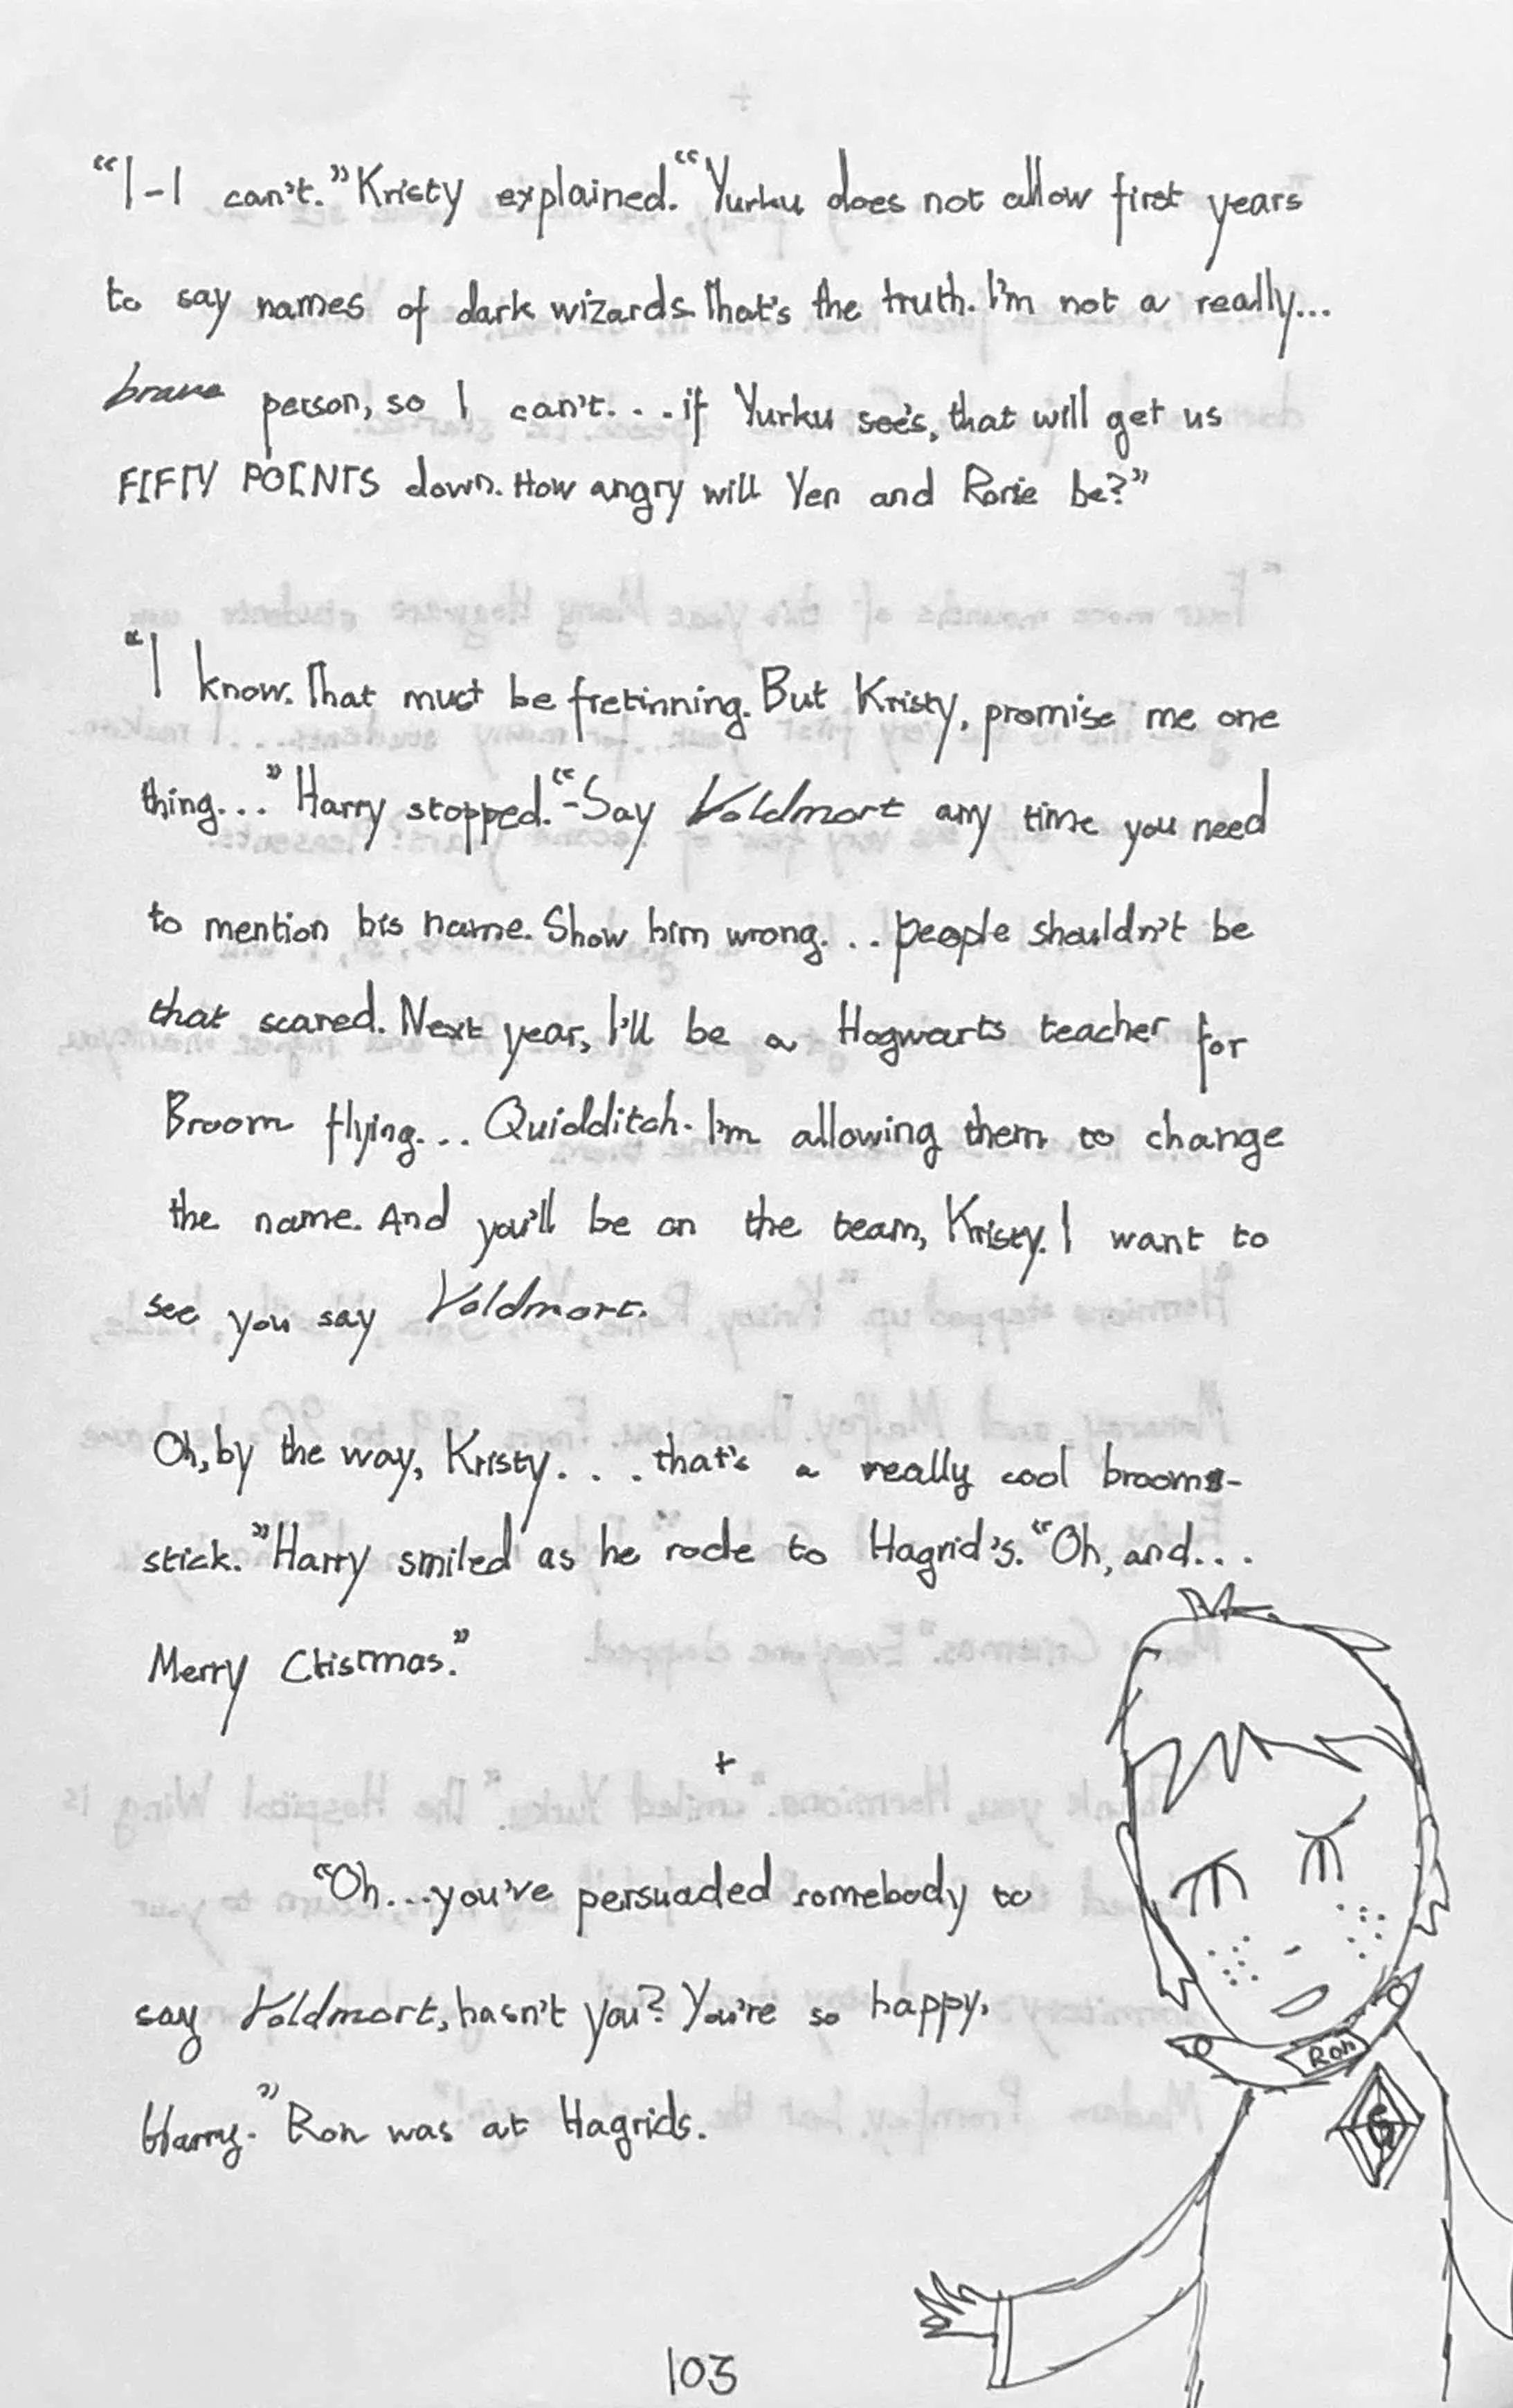 “I-I can't.” Kristy explained. “Yurku does not allow first years
to say names of dark wizards. That's the truth. I'm not a really...
brave person, so I can't... if Yurku see's, that will get us
FIFTY POINTS down. How angry will Yen and Rorie be?”
“I know. That must be fretinning. But Kristy, promise me one
thing...” Harry stopped. “-Say Voldmort any time you need
to mention his name. Show him wrong... people shouldn't be
that scared. Next year, I'll be a Hogwarts teacher for
Broom flying... Quidditch. I'm allowing them to change
the name. And you'll be on the team, Kristy. I want to
see you say Voldmort.
Oh, by the way, Kristy... that's a really cool brooms-
stick.” Harry smiled as he rode to Hagrid's. “Oh, and...
Merry Ctistmas.”
+
“Oh...you've persuaded somebody to
say Voldmort, hasn't you? You're so happy,
Harry.” Ron was at Hagrids.
Ron
103